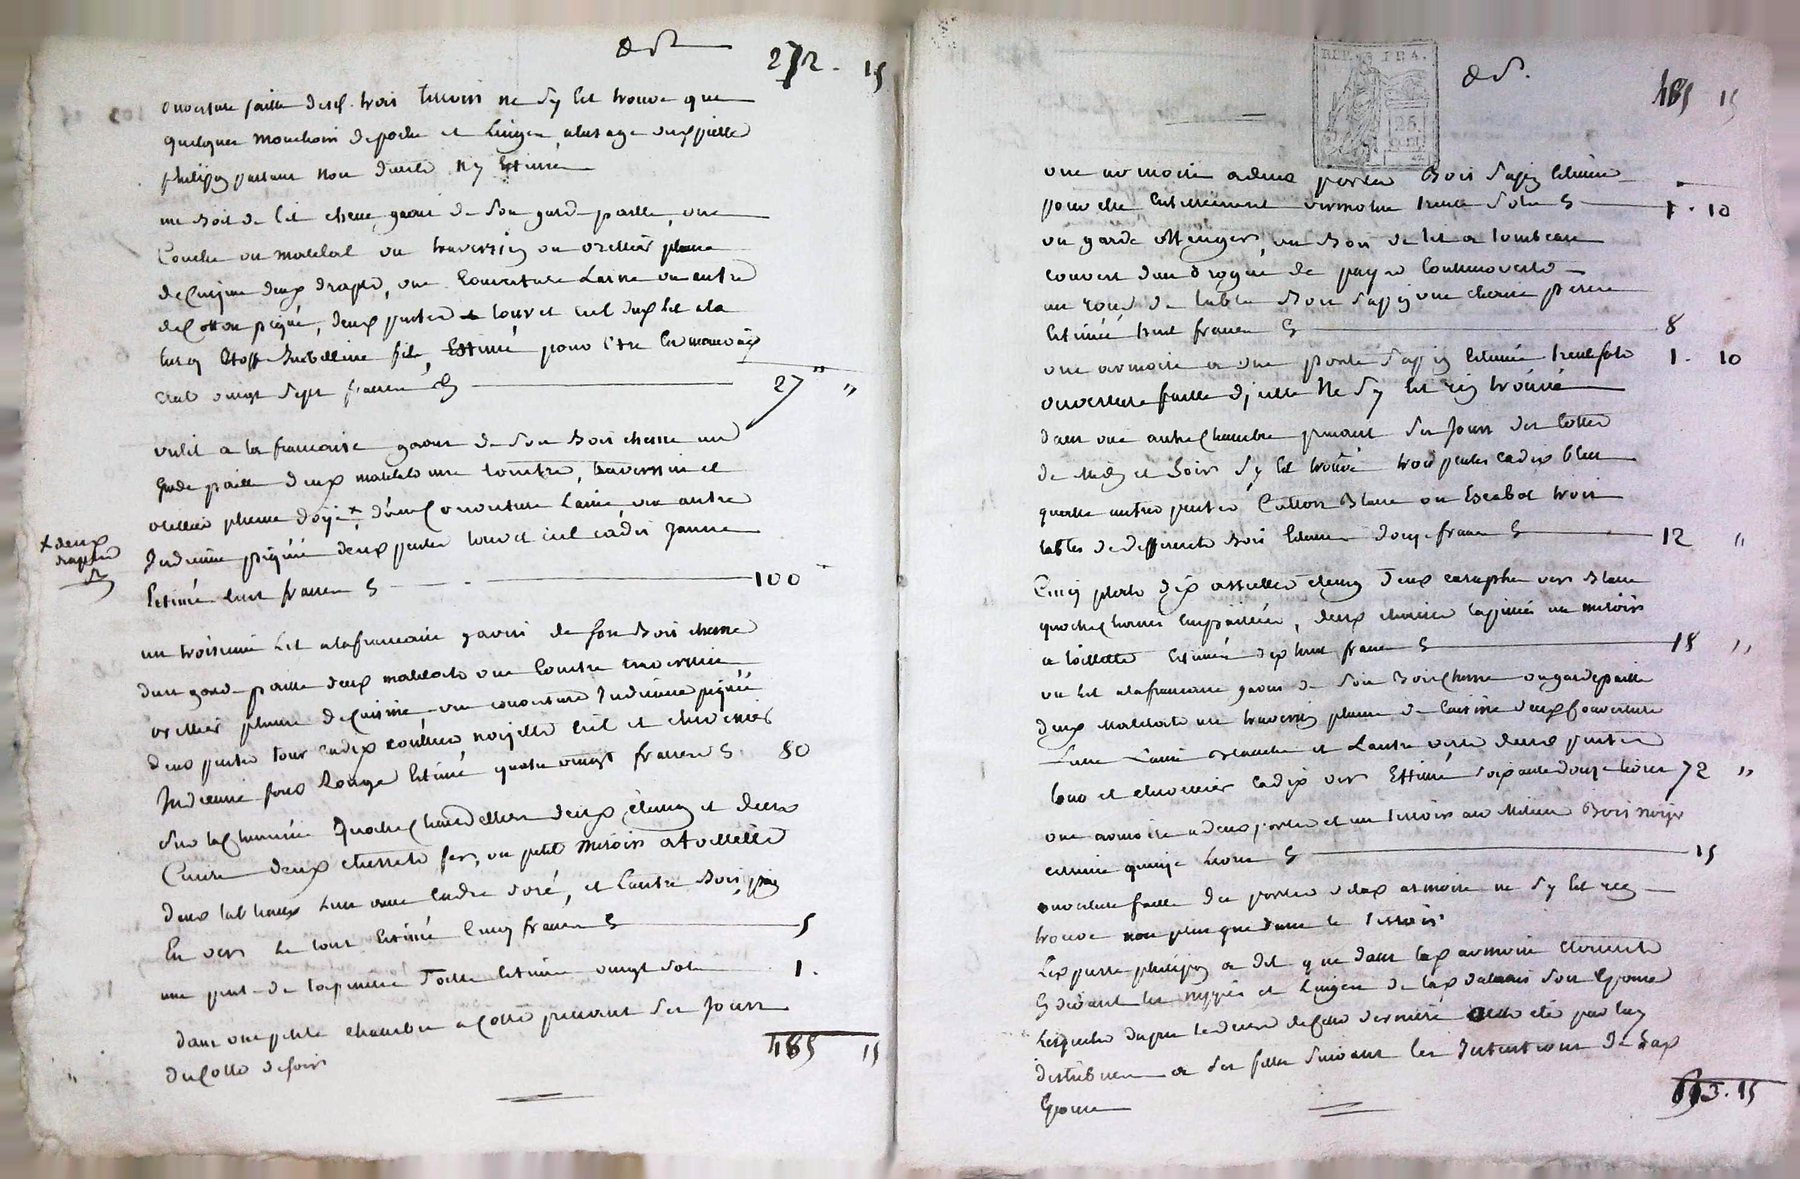 272. 15
ouverture faitte desd. trois tirroirs ne sy est trouvé que
quelques mouchoirs de poche et linges a lusage dud pierre
philipy partant non decrits ny estimés
un bois de lit chene garni de son garde paille, une
couette un matelat un traversin un oreillier plume
de cuisine deux draps, une couverture laine un autre
de cotton piqué, deux pentes tour et ciel dud lit a la
étoffe filo, Estimé pour être en mauvais
état vingt sept francs 27 " "
un lit a la francoise garni de son bois chene un
garde paille deux matelats une couette, traversin et
oreillier plume doye x, d'une couverture laine, une autre
x deux
draps
Indienne piquée deux pentes tour et ciel cadis jaune
Estimé cent francs 100
un troisieme lit a la francoise garni de son bois chene
dun garde paille deux matelats une couette traversin
oreillier plume de cuisine une couverture Indienne piquée
deux pentes tour cadis couleur noizette ciel et chevessier
Indienne fond Rouge Estimé quatre vingt francs 80
sur la cheminée quatre chandelliers deux étaing et deux
Cuivre deux chenets fer, un petit miroir a toillette
deux tableaux lun avec cadre doré, et l'autre bois peint
En vers le tout Estimé cinq francs 5
une pent de tapisserie toille Estimée vingt sols 1.
dans une petite chambre a cotté prenant ses jours
du Cotté de soir
485 15
REP. FRA.
25
485 15
une armoire a deux portes Bois sapin Estimée
pour etre entierement vermoulue trente sols 1. 10
un garde manger, un bois de lit a tombeau
couvert dun droguet de pays a couleur verte
un rond de table bois sapin une chaise percée
Estimée huit francs 8
une armoire a une porte sapin Estimée trente sols 1. 10
ouverture faitte d'jcelle Ne sy est rien trouvé
dans une autre chambre prenant ses jours des Cottés
de Midy et soir sy est trouvé trois pentes cadis bleu
quatre autres pentes Cotton Blanc un Escabot trois
tables de differents bois Estimés douze francs 12 "
Cinq plats dix assiettes étaing deux carafes vers blanc
quatre chaises empaillées, deux chaises tapissées un miroir
a toillette Estimés dix huit francs 18 "
un lit a la francoise garni de son bois chene un garde paille
deux matelats un traversin plume de cuisine deux couvertures
Lune Laine blanche et Lautre verte deux pentes
tour et chevessier cadis vers Estimé soixante douze livres 72 "
une armoire a deux portes et un tirroir au milieu Bois noyer
estimée quinze livres 15
ouverture faitte des portes de lad armoire ne sy est rien
trouvé non plus que dans le tirroir
Led pierre philipy a dit que dans lad armoire étoient
cy devant les nippes et linges de lad son Epouse
Lesquels dapres le deces de cette derniere ont été par luy
distribués a ses filles suivant les Intentions de sad
Epouse
613. 15